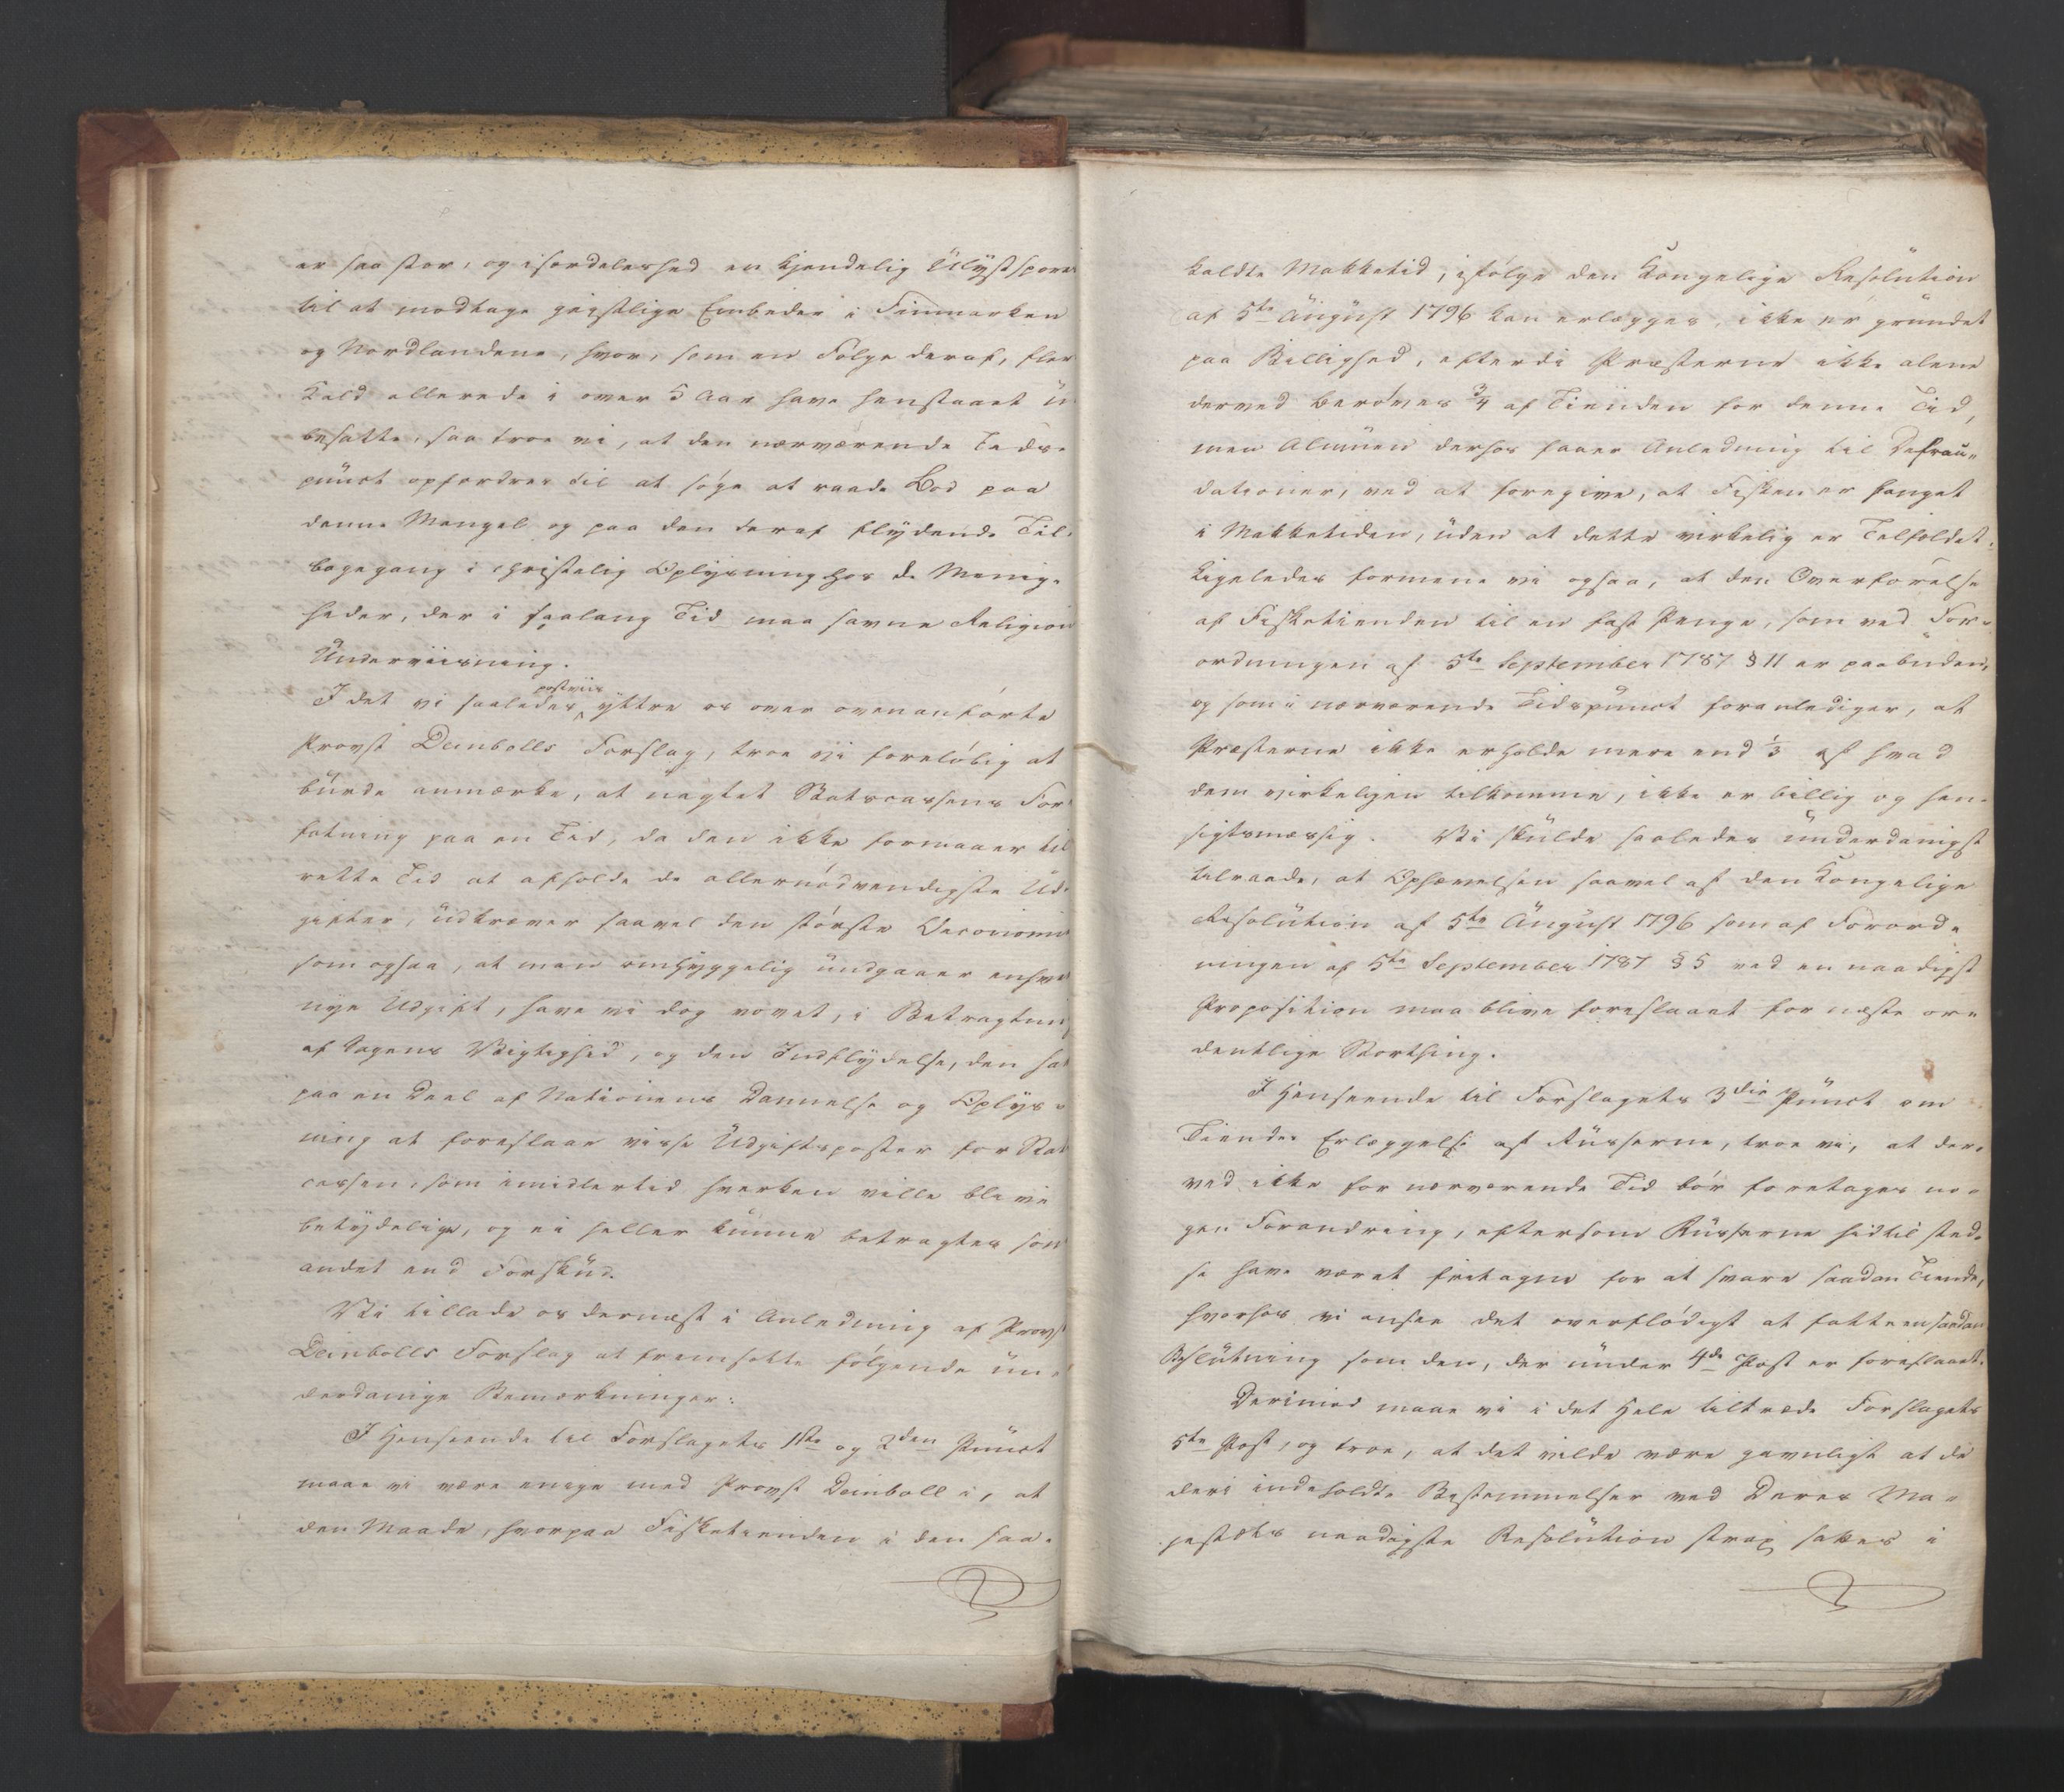 er saa stor, og i særdeleshed en kjendelig Ulyst spores
til at modtage geistlige Embeder i Finmarken
og Nordlandene, hvor, som en Følge deraf, flere
Kald allerede i over 5 Aar have henstaaet u-
besatte, saa troe vi, at den nærværende Tids-
punct opfordrer til at søge at raade Bod paa
denne Mangel og paa den deraf flydende Til-
bagegang i christelig Oplysning hos de Menig-
heder, der i saalang Tid maa savne Religions
Underviisning.
I det vi saaledes postviis yttre os over ovenanførte
Provst Deinbolls Forslag, troe vi foreløbig at
burde anmærke, at uagtet Statscassens For-
fatning paa en Tid, da den ikke formaaer til
rette Tid at afholde de allernødvendigste Ud-
gifter, udkræver saavel den største Oeconomie
som ogsaa, at man omhyggelig undgaaer enhver
nye Udgift, have vi dog vovet, i Betragtning
af Sagens Vigtighed, og den Indflydelse, den har
paa en Deel af Nationens Dannelse og Oplys-
ning at foreslaae visse Udgiftsposter for Stats
cassen, som imidlertid hverken ville blive
betydelige, og ei heller kunne betragtes som
andet end Forskud.
Vi tillade os dernæst i Anledning af Provst
Deinbolls Forslag at fremsætte følgende un-
derdanige Bemærkninger:
I Henseende til Forslagets 1ste og 2den Punct
maae vi være enige med Provst Deinboll i, at
den Maade, hvorpaa Fisketienden i den saa-
kaldte Makketid, ifølge den Kongelige Resolution
af 5te August 1796 kan erlægges, ikke er grundet
paa Billighed, efterdi Præsterne ikke alene
derved berøves 3/4 af Tienden for denne Tid,
men Almuen derhos faaer Anledning til Defrau-
dationer, ved at foregive, at Fisken er fanget
i Makketiden, uden at dette virkelig er Tilfældet.
Ligeledes formene vi ogsaa, at den Overførelse
af Fisketienden til en fast Penge, som ved For-
ordningen af 5te September 1787 § 11 er paabuden,
og som i nærværende Tidspunct foranlediger, at
Præsterne ikke erholde mere end 1/3 af hvad
dem virkeligen tilkomme, ikke er billig og hen-
sigtsmæssig. Vi skulde saaledes underdanigst
tilraade, at Ophævelsen saavel af den Kongelige
Resolution af 5te August 1796 som af Forord-
ningen af 5te September 1787 § 5 ved en naadigst
Proposition maa blive foreslaaet for næste or-
dentlige Storthing.
I Henseende til Forslagets 3die Punct om
Tiendes Erlæggelse af Russerne, troe vi, at der-
ved ikke for nærværende Tid bør foretages no-
gen Forandring, eftersom Russerne hidtil sted-
se have været fritagne for at svare saadan Tiende,
hvorhos vi ansee det overflødigt at fatte en saadan
Beslutning som den, der under 4de Post er foreslaaet.
Derimod maae vi i det Hele tiltræde Forslagets
5te Post, og troe, at det vilde være gavnligt at de
deri indeholdte Bestemmelser ved Deres Ma-
jestæts naadigste Resolution strax sættes i